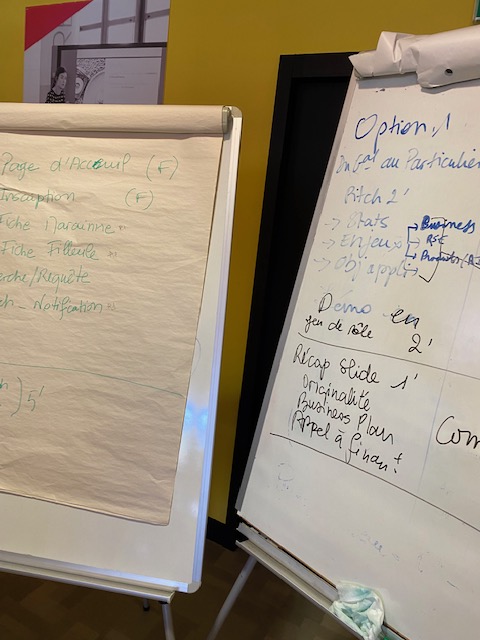 Page d'Accueil (F)
Inscription (F)
Fiche Marainne "
Fiche Filleule "
erche/Requête
ch_Notification "
) 5'
Option 1
Du Gal au Particulier
Pitch 2'
-> Stats
-> Enjeux
-> Obj appli
Business
RSE
Demo en
jeu de rôle 2'
Récap slide 1'
originalité
Business Plan
Appel à finant
Com